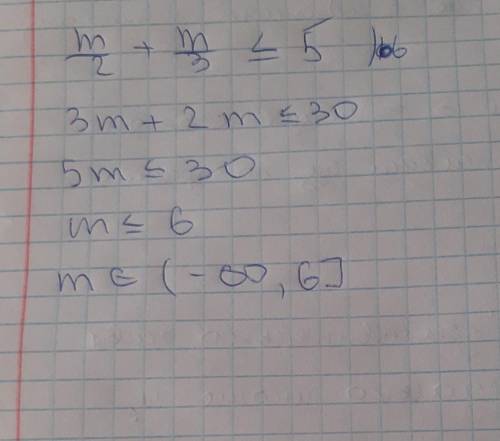 m/2 + m/3 ≤ 5 | · 6
3m + 2m ≤ 30
5m ≤ 30
m ≤ 6
m ∈ (-∞, 6]